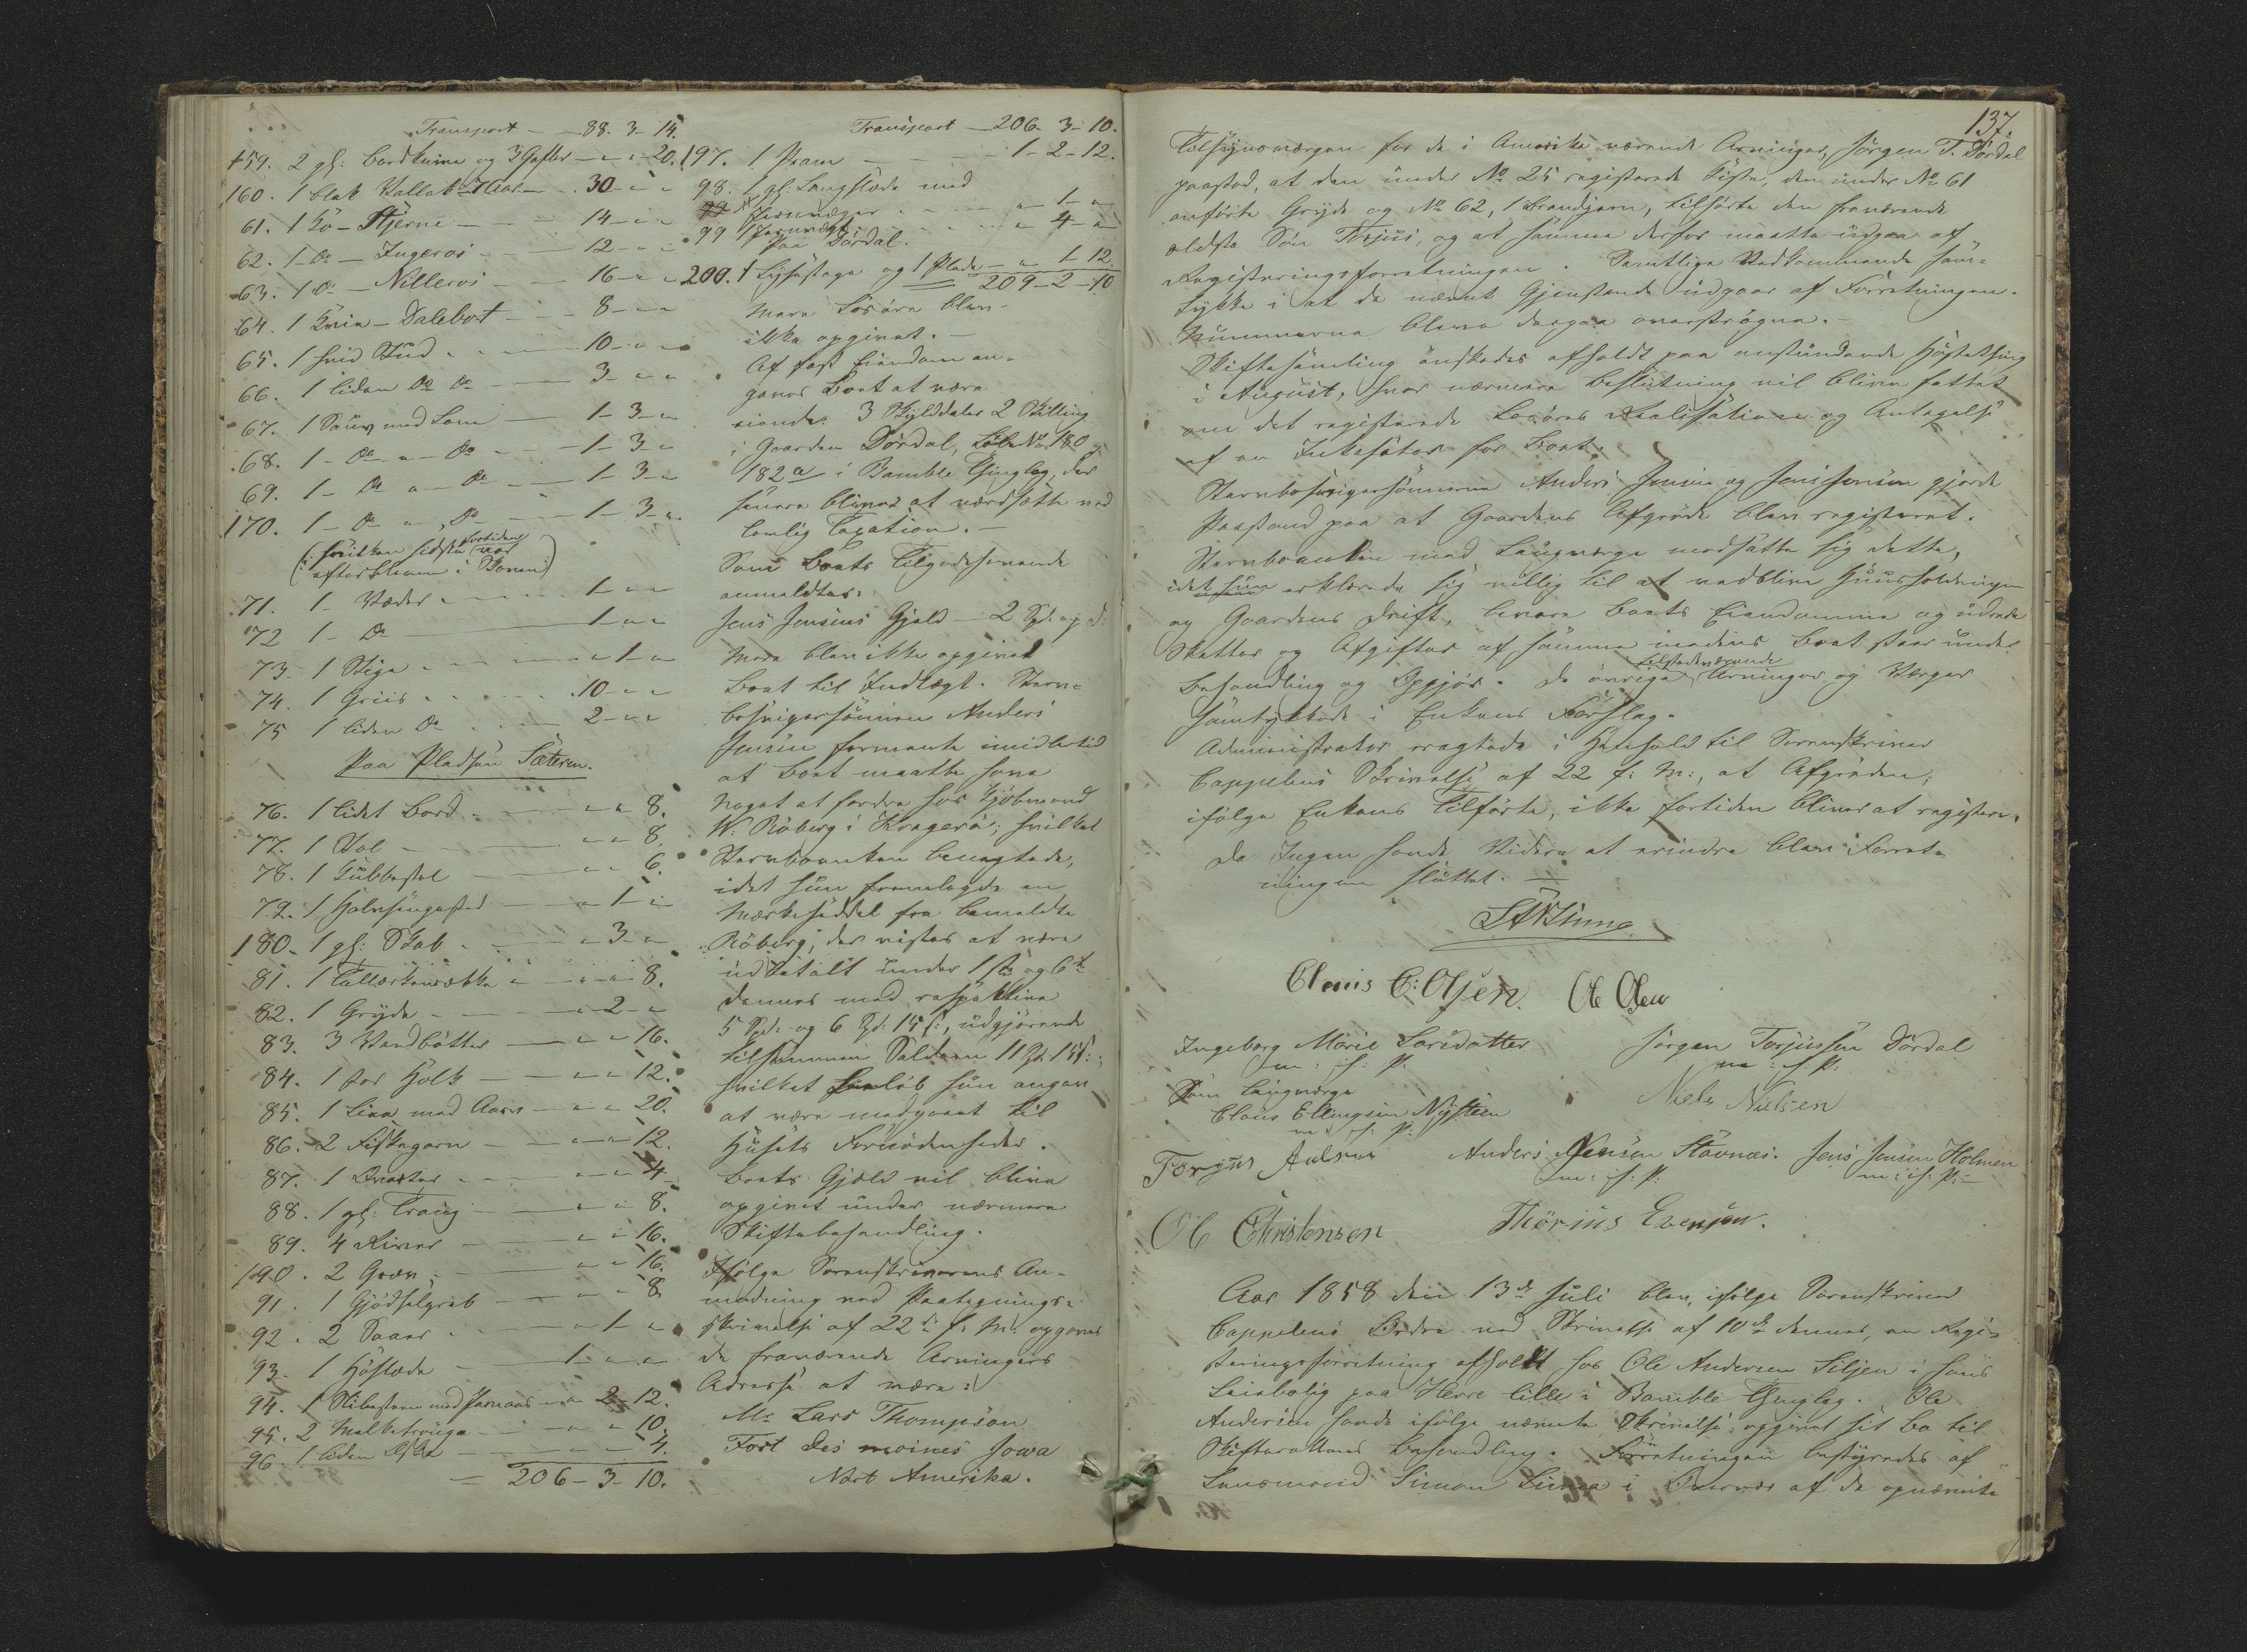 Transport - 88. 3. 14.
159. 2 gl: Bordknive og 3 Gafler - " - " - 20.
160. 1 blak Vallak 7 Aar - 30 - " - "
61. 1 Ko - Stjerne - 14 - " - "
62. 1 Do - Fugeroi - 12 - " - "
63. 1 Do - Nilleroi - 16 - " - "
64. 1 Qvie - Dalebot - 8 - " - "
65. 1 hvid Stud - 10 - " - "
66. 1 liden Do Do - 3 - " - "
67. 1 Sauv med Lam - 1 - 3 - "
68. 1 - Do - " - Do - 1 - 3 - "
69. 1 - Do " - Do - 1 - 3 - "
170. 1 - Do - " - Do - 1 - 3 - "
(: hvilken sidste fortiden var
efterbleven i Skoven :)
71. 1 Væder - 1 - " - "
72 1 - Do - 1 - " - "
73. 1 Stige - " - 1 - "
74. 1 Griis - 10 - " - "
75 1 liden Do - 2 - " - "
Paa Pladsen Sæteren.
76. 1 lidet Bord - " - " 8.
77. 1 Stol - " - " 8.
78. 1 Kubbestol - " - " 6.
79. 1 Halvsengested - " - 1 - "
180. 1 gl: Skab - " - 3 - "
81. 1 Tallerkenrække - " - " - 8.
82. 1 Gryde - " - 2 - "
83. 3 Vandbøtter - " - " 16.
84. 1 stor Holk - " - " 12.
85. 1 Liaa med Aarv - " - " 20.
86. 2 Fiskegarn - " - " 12.
87. 1 - " - " 4
88. 1 gl: Traug - " - " 8.
89. 4 River - " - " 16.
190. 2 Grev - " - " 16.
91. 1 Gjødselgreb - " - " 8
92. 2 Saaer - " - 1 - "
93. 1 Høslæde - 1 - " - "
94. 1 Slibesteen med Jernaas - " - 2 - 12.
95. 2 Melketrauge - " - " 10.
96. 1 liden - " - " 4.
= 206 - 3 - 10.
Transport - 206. 3 - 10.
197. 1 Pram - 1 - 2 - 12.
98. 1 gl: Langslæde med
99 Jernvæger - " - 1 - "
99 1 Jernvægt - " - 4 - "
Paa Dördal.
200. 1 Lysestage og 1 Plade - " 1 - 12.
209 - 2 - 10
Mere Løsøre blev
ikke opgivet. -
Af fast Eiendom an-
gaves Boet at være
eiende: 3 Skylddaler 2 Skilling
i Gaarden Dördal, Løbe No 180 og
182 a i Bamble Thinglag, der
senere bliver at værdsætte ved
lovlig Taxation. -
Som Boets Tilgodehavende
anmeldtes:
Jens Jensens Gjeld - 2 Spd:
Mere blev ikke opgivet
Boet til Indtægt. Sterv-
bosvigersønnen Anders
Jensen formente imidlertid
at Boet maatte have
Noget at fordre hos Kjøbmand
W: Röberg i Kragerö; hvilket
Stervboenken benegtede,
idet hun fremlagde en
Mærkeseddel fra bemeldte
Röberg, der vistes at være
udbetalt under 1ste og 6te
dennes med respektive
5 Spd: og 6 Spd: 15 s:, udgjørende
tilsammen Saldoen 11 Spd: 15 s:;
hvilket Beløb hun angav
at være medgaaet til
Husets Fornødenheder.
Boets Gjeld vil blive
opgivet under nærmere
Skiftebehandling.
Ifølge Sorenskriverens An-
modning ved Paategnings-
skrivelse af 22de f: M: opgaves
de fraværende Arvingers
Adresse at være:
Mr Lars Thompson
Fort des moines Jowa
Nort Amerika.
137.
Tilsynsværgen for de i Amerika værende Arvinger, Jørgen T. Dördal
paastod, at den under No 25 registrerede Kiste, den under No 61
anførte Gryde og No 62, 1 Brandjern, tilhørte den fraværende
ældste Søn Torjus, og at samme derfor maatte udgaa af
Registreringsforretningen. Samtlige Vedkommende sam-
tykte i at de nævnte Gjenstande udgaar af Forretningen.
Nummerne bleve derpaa overstrøgne. -
Skiftesamling ønskedes afholdt paa anstundende Høstething
i August, hvor nærmere Beslutning vil blive fattet
om det registrerede Løsøres Realisation og Antagelse
af en Inkasator for Boet.
Stervbosvigersønnerne Anders Jensen og Jens Jensen gjorde
Paastand paa at Gaardens Afgrøde blev registreret.
Stervboenken med Laugværge modsatte sig dette,
idet hun erklærede sig villig til at vedblive Huusholdningen
og Gaardens Drift, bevare Boets Eiendomme og udrede
Skatter og Afgifter af samme imedens Boet staar under
Behandling og Opgjør. De øvrige tilstedeværende Arvinger og Værger
samtykkede i Enkens Forslag.
Administrator eragtede i Henhold til Sorenskriver
Cappelens Skrivelse af 22 f: M:, at Afgrøden,
ifølge Enkens Tilførte, ikke fortiden bliver at registrere.
Da Ingen havde Videre at erindre blev Forret-
ningen sluttet. -
Clauis C: Olsen. Ole Olsen
Ingeborg Marie Larsdatter Jørgen Torjussen Dördal
m: f: P: m: f: P:
Som Laugværge Niels Nielsen
Claus Ellingsen Nysteen
m: f: P:
Torgus Anders Jensen Stavnæs. Jens Jensen Holmen
m: f: P: m: f: P:
Ole Christensen Thorius Evensen.
Aar 1858 den 13de Juli blev, ifølge Sorenskriver
Cappelens Ordre ved Skrivelse af 10de dennes, en Regi-
streringsforretning afholdt hos Ole Andersen Siljen i hans
Leiebolig paa Herre lille i Bamble Thinglag. Ole
Andersen havde ifølge nævnte Skrivelse opgivet sit Bo til
Skifterettens Behandling. Forretningen bestyredes af
Lensmand Simon i af de opnævnte